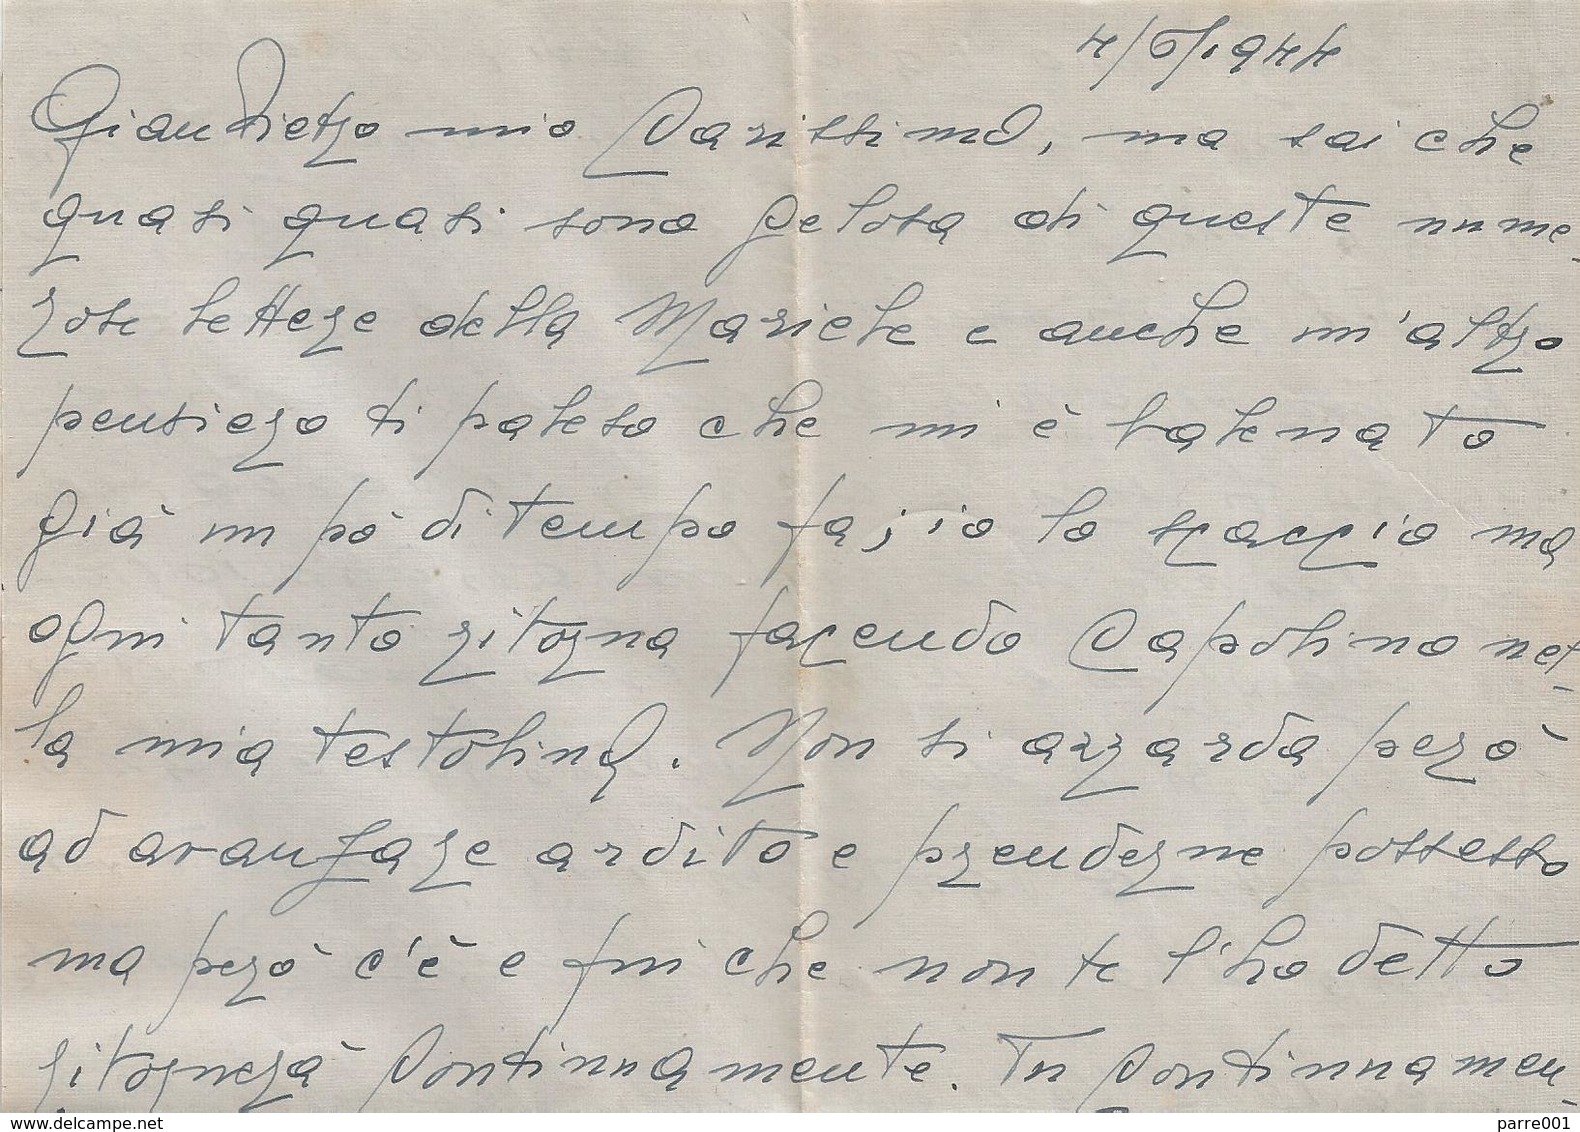 4/6/1944
GianPietro mio Carissimo, ma sai che
quasi quasi sono gelosa di queste nume-
rose lettere della Mariele e anche un'altro
pensiero ti paleso che mi è balenato
già un pò di tempo fa; io lo scaccio ma
ogni tanto ritorna facendo Capolino nel-
la mia testolina. Non si azzarda però
ad avanzare ardito e prenderne possesso
ma però c'è e fin che non te l'ho detto
ritornerà Continuamente. Tu Continuamen-
www.delcampe.net
parre001